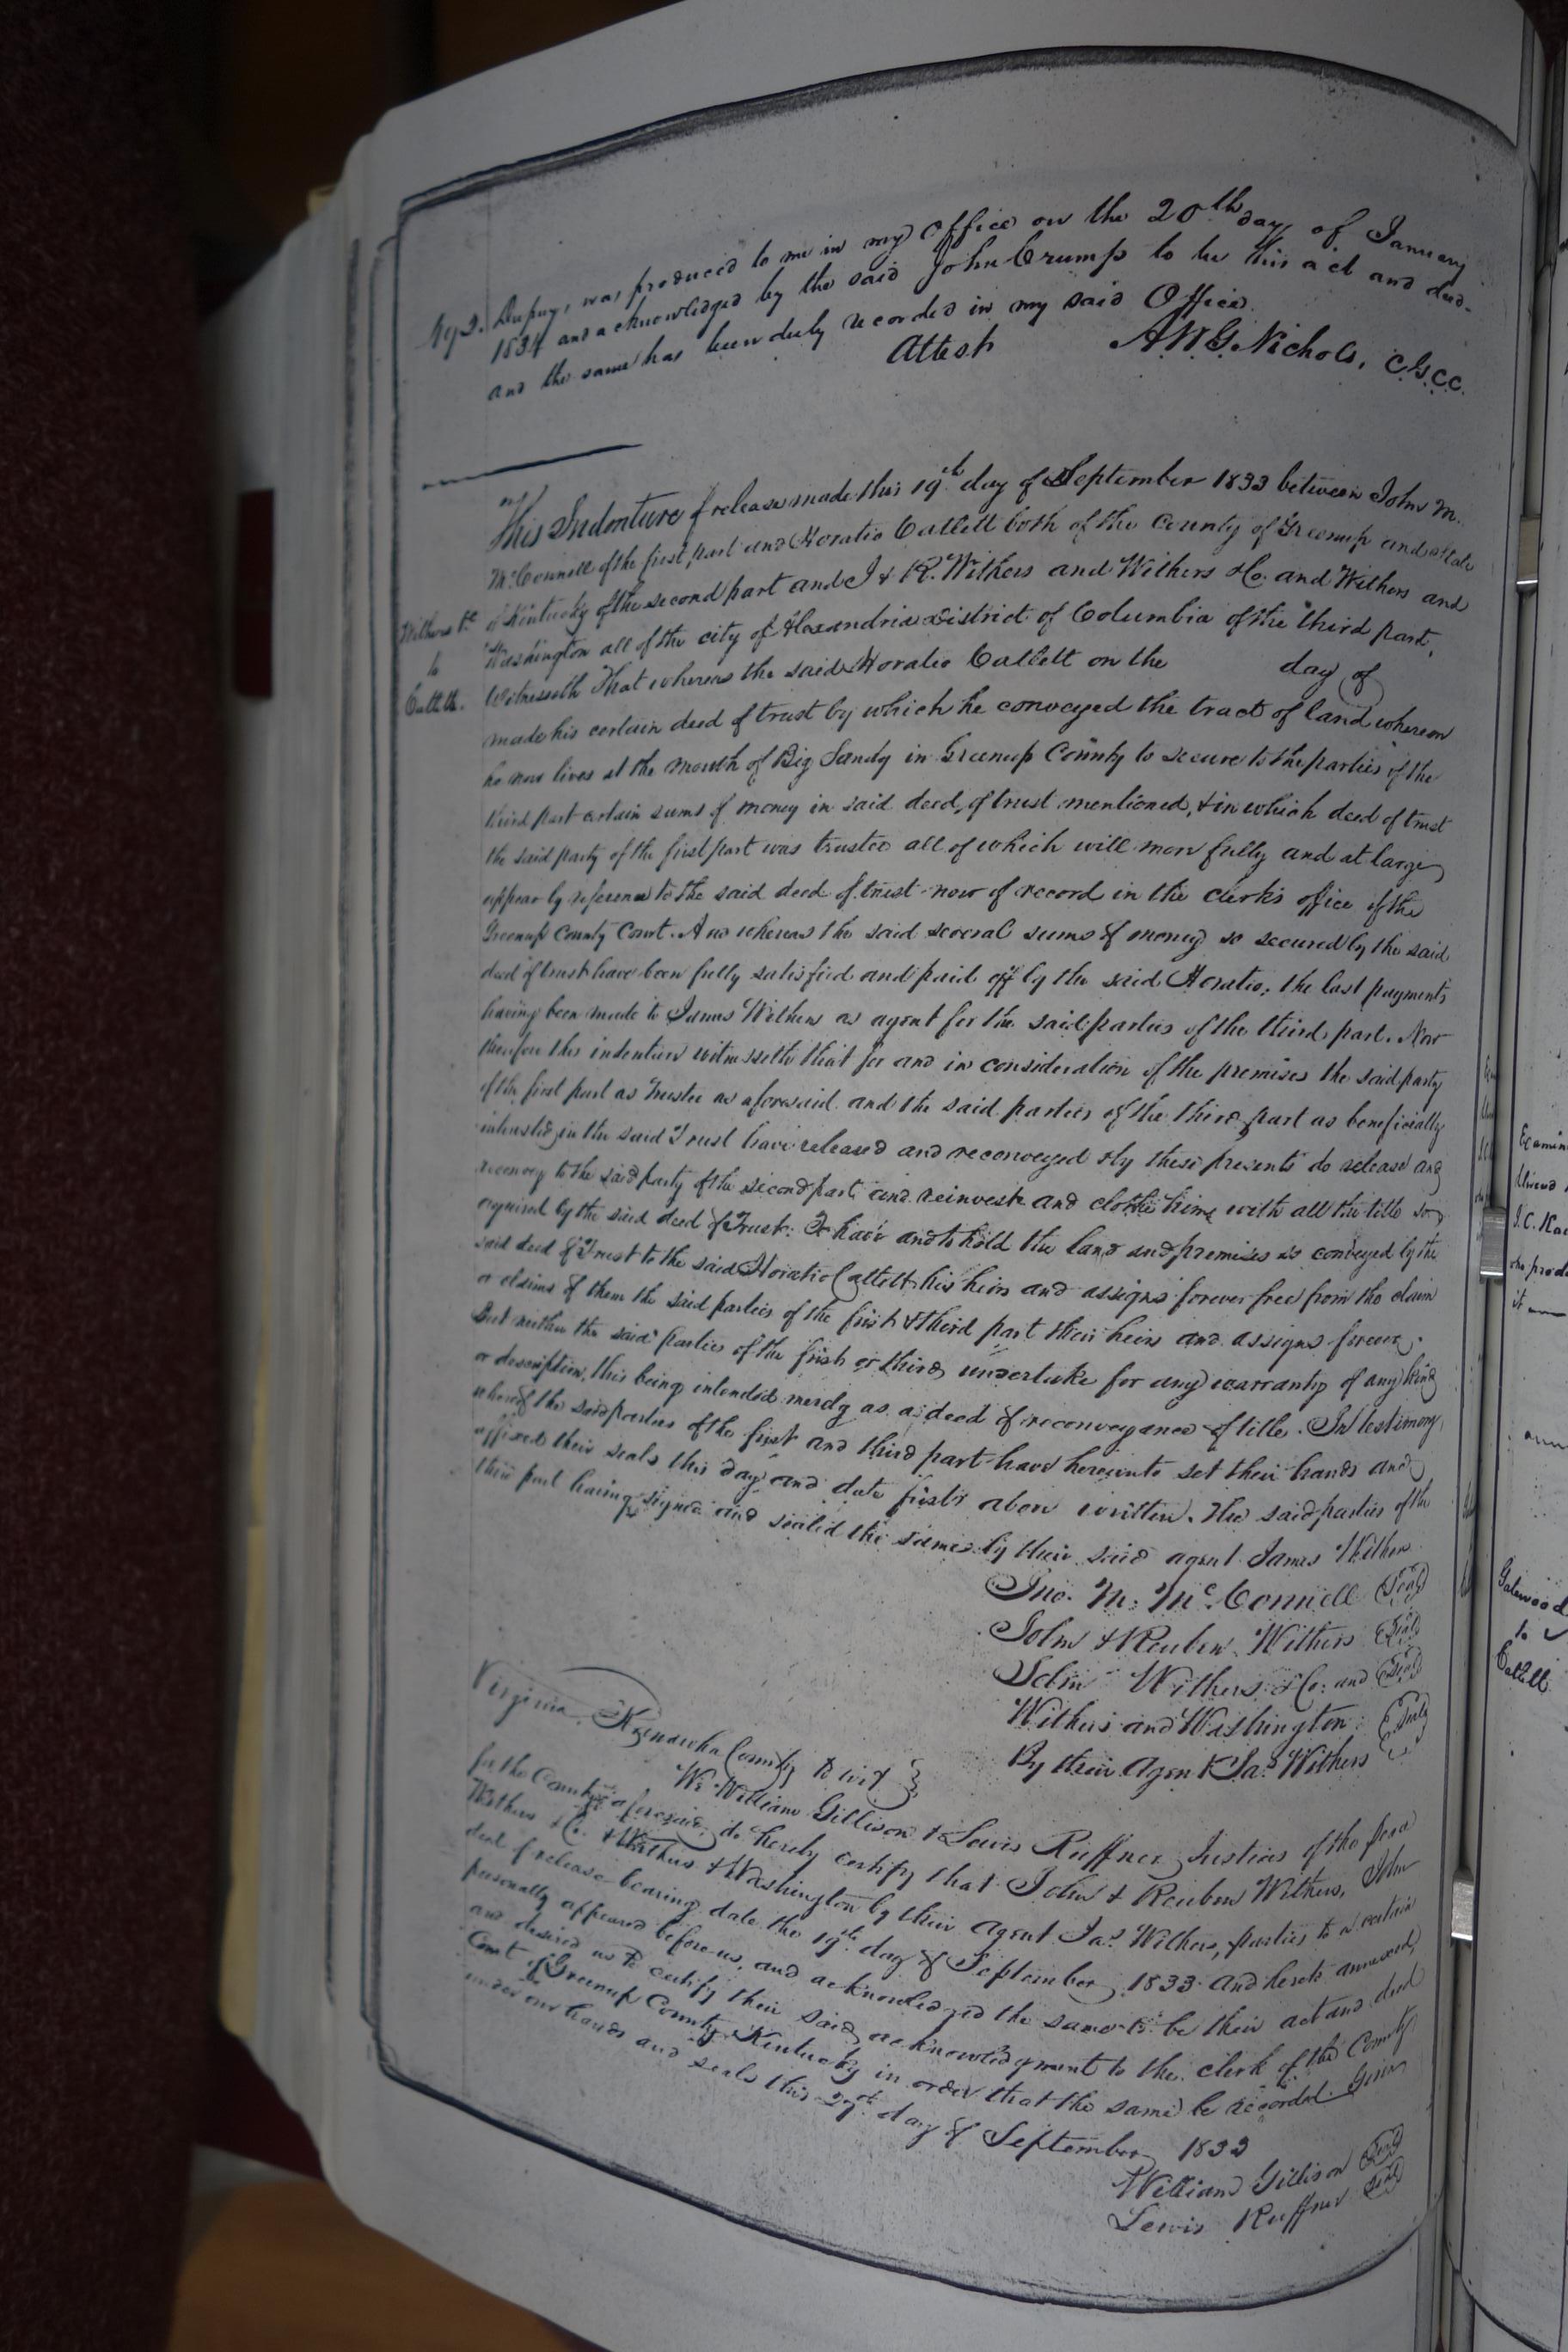 Dupuy, was produced to me in my Office on the 20th day of January
1834 and acknowledged by the said John Crump to be his act and deed.
and the same has been duly recorded in my said Office.
Attest A.W.G. Nichols, C.G.C.C.
This Indenture of release made this 19th day of September 1833 between John M.
McConnell of the first part and Horatio Catlett both of the County of Greenup and state
of Kentucky of the second part and J & R. Withers and Withers & Co. and Withers and
Washington all of the city of Alexandria District of Columbia of the third part,
Withers &c
to
Catlett.
Witnesseth That whereas the said Horatio Catlett on the day of
made his certain deed of trust by which he conveyed the tract of land whereon
he now lives at the mouth of Big Sandy in Greenup County to secure to the parties of the
third part certain sums of money in said deed of trust mentioned, & in which deed of trust
the said party of the first part was trustee all of which will more fully and at large
appear by reference to the said deed of trust now of record in the clerks office of the
Greenup County Court. And whereas the said several sums of money so secured by the said
deed of trust have been fully satisfied and paid off by the said Horatio, the last payments
having been made to James Withers as agent for the said parties of the third part. Now
therefore this indenture witnesseth that for and in consideration of the premises the said party
of the first part as Trustee as aforesaid and the said parties of the third part as beneficially
interested in the said Trust have released and reconveyed & by these presents do release and
reconvey to the said party of the second part and reinvest and clothe him with all the title so
acquired by the said deed of Trust: To have and to hold the land and premises so conveyed by the
said deed of Trust to the said Horatio Catlett his heirs and assigns forever free from the claim
or claims of them the said parties of the first & third part their heirs and assigns forever.
But neither the said parties of the first or third undertake for any warranty of any kind
or description, this being intended merely as a deed of reconveyance of title. In testimony
whereof the said parties of the first and third part have hereunto set their hands and
affixed their seals this day and date first above written. The said parties of the
third part having signed and sealed the same by their said agent James Withers
Jno. M. McConnell Seal
John & Reuben Withers Seal
John Withers & Co: and Seal
Withers and Washington Seal
By their Agent Jas Withers
Virginia, Kanawha County to wit
We William Gillison & Lewis Ruffner Justices of the peace
for the County aforesaid, do hereby certify that John & Reuben Withers, John
Withers & Co. & Withers & Washington by their agent Jas. Withers, parties to a certain
deed of release bearing date the 19th day of September 1833 and hereto annexed,
personally appeared before us, and acknowledged the same to be their act and deed
and desired us to certify their said acknowledgment to the clerk of the County
Court of Greenup County Kentucky in order that the same be recorded. Given
under our hands and seals this 27th day of September 1833
William Gillison Seal
Lewis Ruffner Seal
Gatewood
to
Catlett